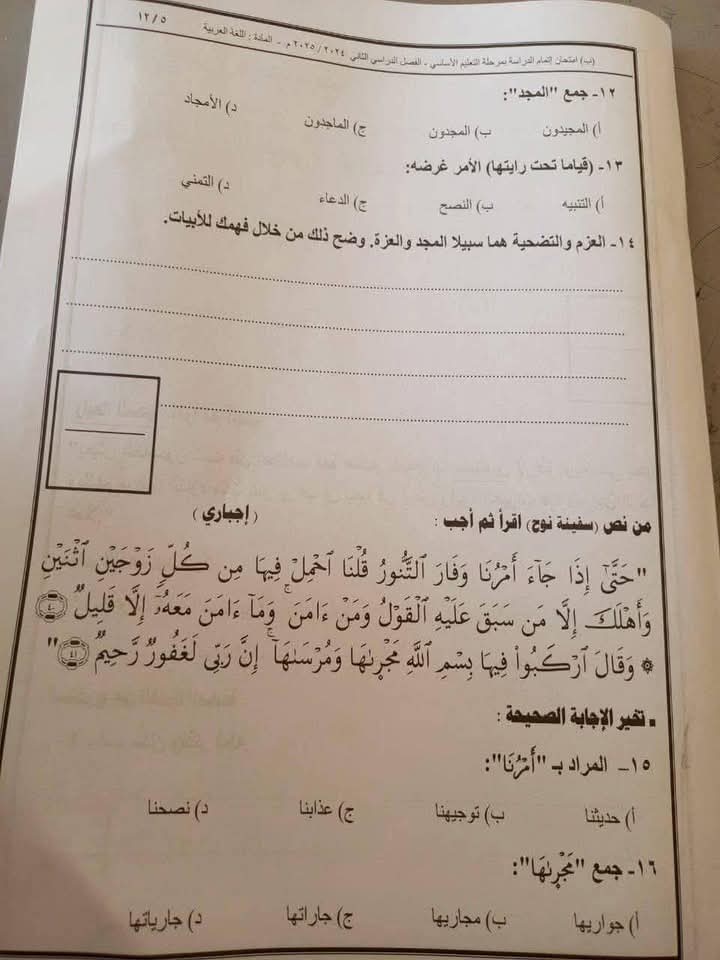 (ب) امتحان إتمام الدراسة بمرحلة التعليم الأساسي - الفصل الدراسي الثاني ٢٠٢٤ / ٢٠٢٥ م. - المادة : اللغة العربية ١٢/٥
١٢- جمع "المجد":
أ) المجيدون ب) المجدون ج) الماجدون د) الأمجاد
١٣- (قياما تحت رايتها) الأمر غرضه:
أ) التنبيه ب) النصح ج) الدعاء د) التمني
١٤- العزم والتضحية هما سبيلا المجد والعزة. وضح ذلك من خلال فهمك للأبيات.
من نص (سفينة نوح) اقرأ ثم أجب : (إجباري)
"حَتَّىٰٓ إِذَا جَآءَ أَمْرُنَا وَفَارَ ٱلتَّنُّورُ قُلْنَا ٱحْمِلْ فِيهَا مِن كُلٍّۢ زَوْجَيْنِ ٱثْنَيْنِ
وَأَهْلَكَ إِلَّا مَن سَبَقَ عَلَيْهِ ٱلْقَوْلُ وَمَنْ ءَامَنَ ۚ وَمَآ ءَامَنَ مَعَهُۥٓ إِلَّا قَلِيلٌ ٤٠
۞ وَقَالَ ٱرْكَبُوا۟ فِيهَا بِسْمِ ٱللَّهِ مَجْر۪ىٰهَا وَمُرْسَىٰهَآ ۚ إِنَّ رَبِّى لَغَفُورٌ رَّحِيمٌ ٤١"
▪ تخير الإجابة الصحيحة :
١٥- المراد بـ "أَمْرُنَا":
أ) حديثنا ب) توجيهنا ج) عذابنا د) نصحنا
١٦- جمع "مَجْر۪ىٰهَا":
أ) جواريها ب) مجاريها ج) جاراتها د) جارياتها